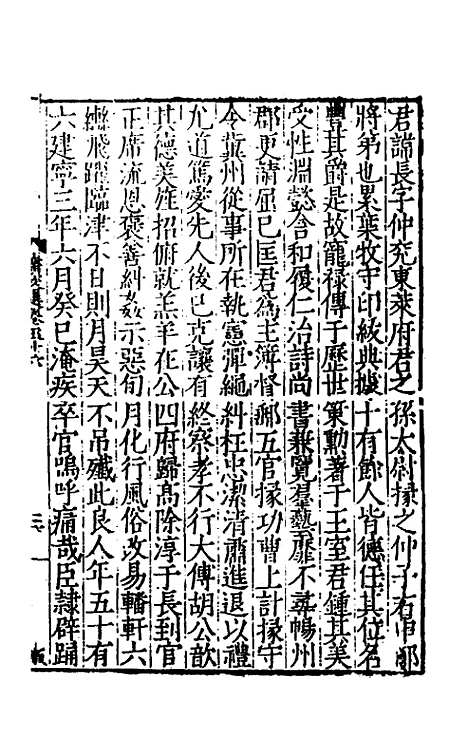 君諱長字仲兖東萊府君之孫太尉掾之仲子右中郎
將弟也累葉牧守印紱典據十有餘人皆德任其位名
豐其爵是故寵祿傳于歷世策勳著于王室君鍾其美
受性淵懿含和履仁治詩尚書兼覽羣藝靡不尋暢州
郡更請屈已匡君為主簿督郵五官掾功曹上計掾守
令冀州從事所在執憲彈繩糾枉忠潔清肅進退以禮
允道篤愛先人後已克讓有終察孝不行大傅胡公歆
其德美旌招俯就羔羊在公四府歸高除淳于長到官
正席流恩襃善糾姦示惡旬月化行風俗改易轓軒六
轡飛躍臨津不日則月昊天不吊殲此良人年五十有
六建寧三年六月癸巳淹疾卒官嗚呼痛哉臣隷辟踊